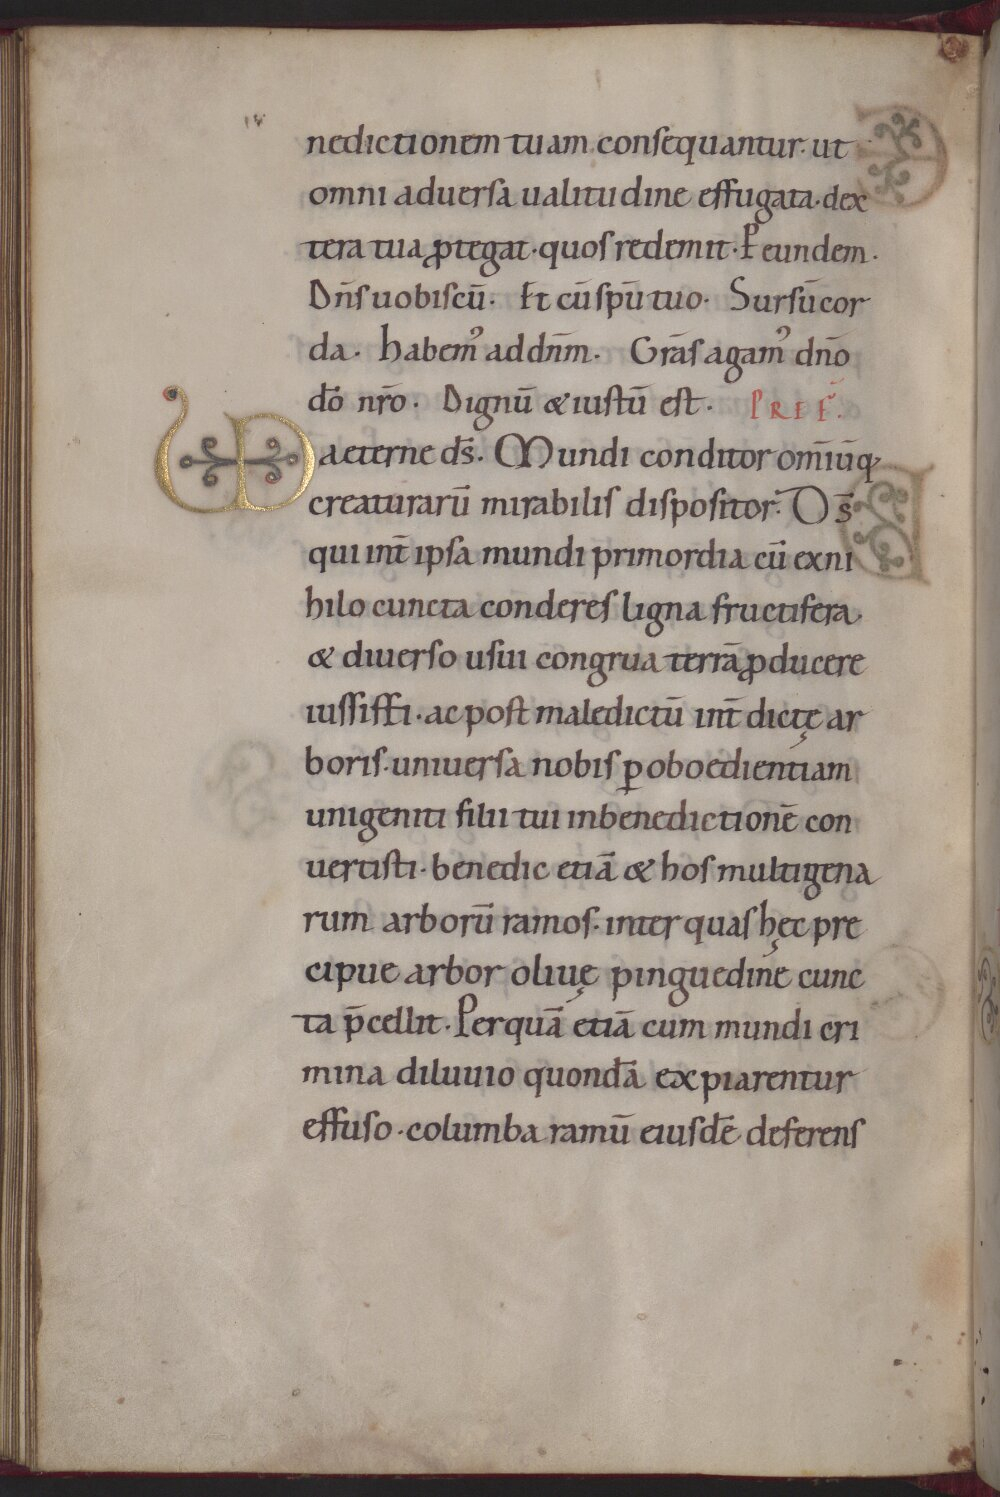 nedictionem tuam consequantur. ut
omni aduersa ualitudine effugata. dex
tera tua ꝓtegat. quos redemit. P eundem.
Dn̄s uobiscū. Et cū spū tuo. Sursū cor
da. habem᾽ ad dn̄m. Grās agam᾽ dn̄o
dō nr̄o. Dignū & iustū est. PREF̄.
UD aeterne ds̄. Mundi conditor om̄iūq;
creaturarū mirabilis dispositor. Ds̄
qui int̄ ipsa mundi primordia cū exni
hilo cuncta conderes ligna fructifera.
& diuerso usui congrua terrā ꝓducere
iussisti. ac post maledictū int̄dictę ar
boris. uniuersa nobis ꝑ oboedientiam
unigeniti filii tui in benedictionē con
uertisti. benedic etiā & hos multigena
rum arborū ramos. inter quas hęc pre
cipue arbor oliuę pinguedine cunc
ta p̄cellit. Per quā etiā cum mundi cri
mina diluuio quondā expiarentur
effuso. columba ramū eiusdē deferens